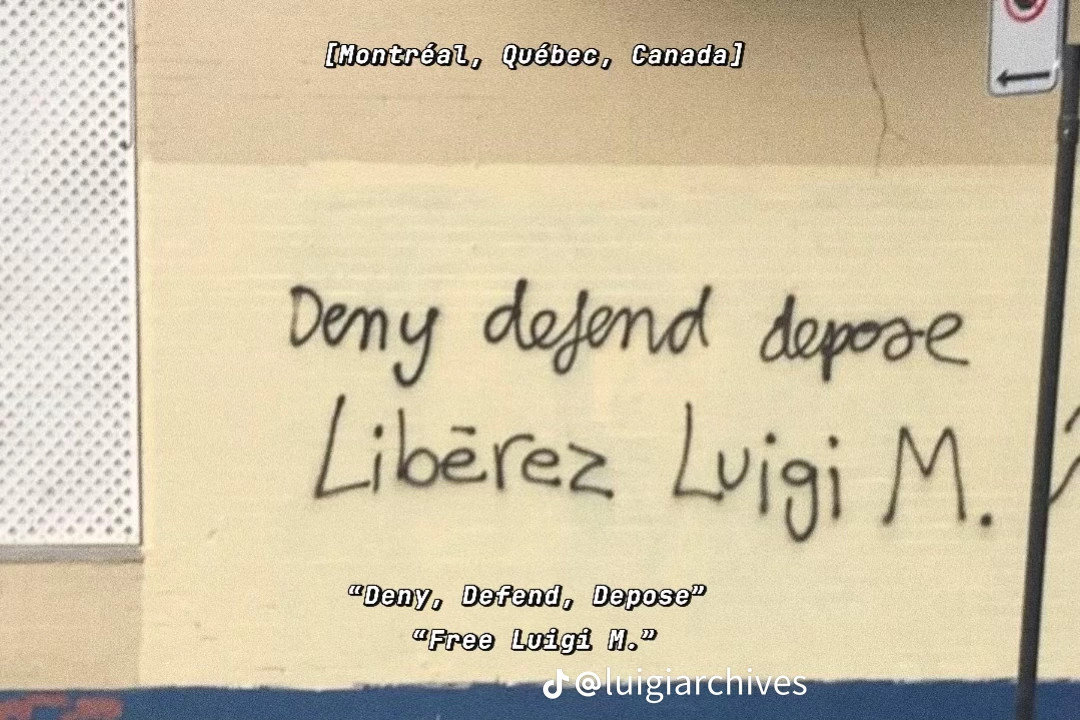 [Montréal, Québec, Canada]
Deny defend depose
Libérez Luigi M.
“Deny, Defend, Depose”
“Free Luigi M.”
@luigiarchives